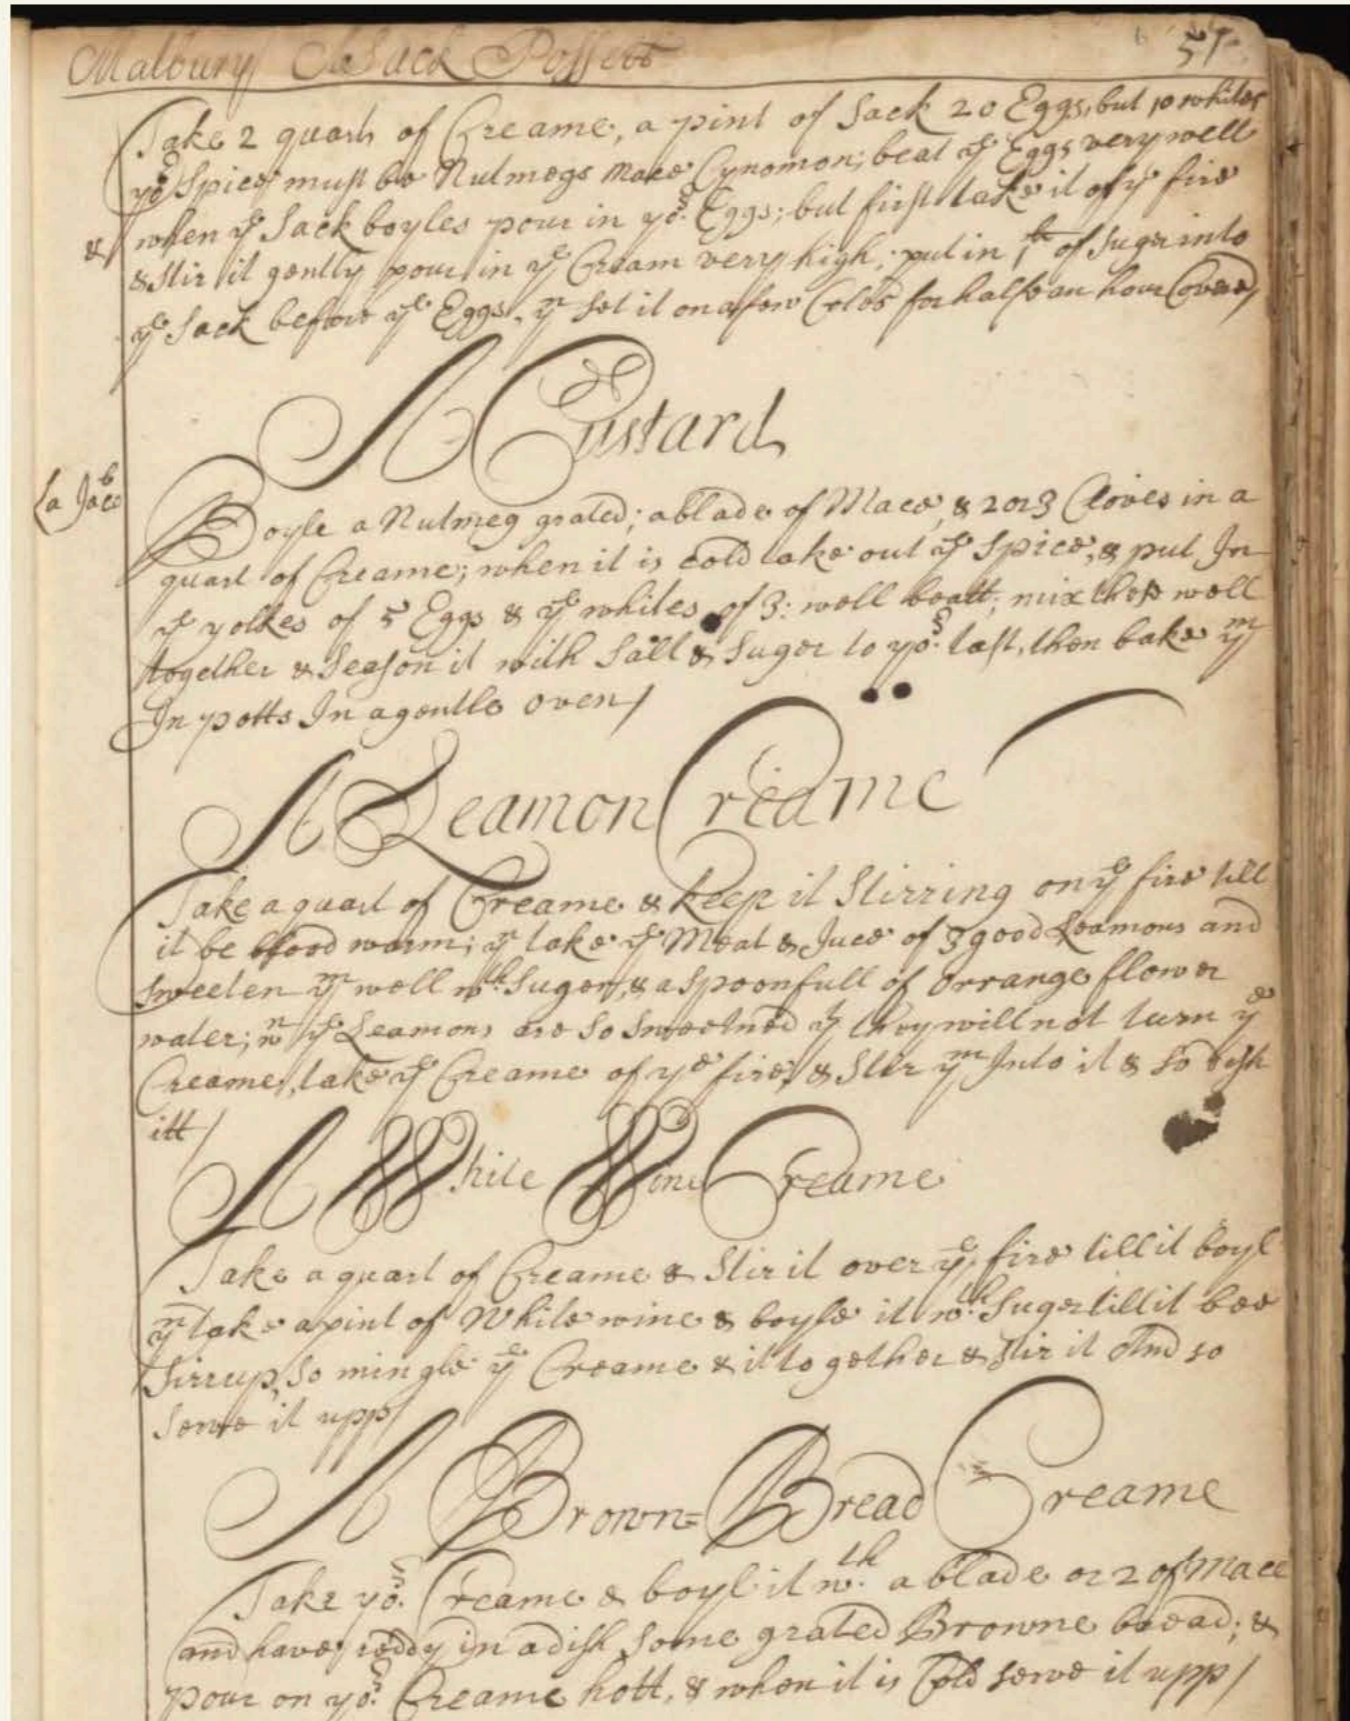 Malbury Sack Possett 51
Take 2 quarts of Creame, a pint of Sack 20 Eggs, but 10 whites
yor Spices must be Nutmegs mace Cynomon; beat ye Eggs very well
& when ye Sack boyles pour in yor Eggs; but first take it of ye fire
& stir it gently pour in ye Cream very high; put in of Suger into
ye Sack before ye Eggs, yn set it on a few Coles for half an hour Covered
A Custard
La Jace
Boyle a Nutmeg grated; a blade of Mace, & 2 or 3 Cloves in a
quart of Creame; when it is cold take out ye Spice, & put In
ye yolkes of 5 Eggs & ye whites of 3: well beatt; mix thes well
together & Season it with Salt & Suger to yor tast, then bake ym
In potts In a gentle oven/
A Leamon Creame
Take a quart of Creame & keep it Stirring on ye fire till
it be blood warm; yn take ye Meat & Juce of 3 good Leamons and
sweeten ym well wth Suger, & a spoonfull of orrange flower
water; wn ye Leamons are so sweetned yt they will not turn ye
Creame, take ye Creame of ye fire, & Stir ym Into it & so dish
itt/
A White Wine Creame
Take a quart of Creame & Stir it over ye fire till it boyl
yn take a pint of White wine & boyle it wth Suger till it bee
Sirrup, So mingle ye Creame & it together & stir it And so
serve it upp/
A Brown=Bread Creame
Take yor Creame & boyl it wth a blade or 2 of Mace
and have reddy in a dish some grated Browne bread; &
pour on yor Creame hott, & when it is Cold serve it upp/